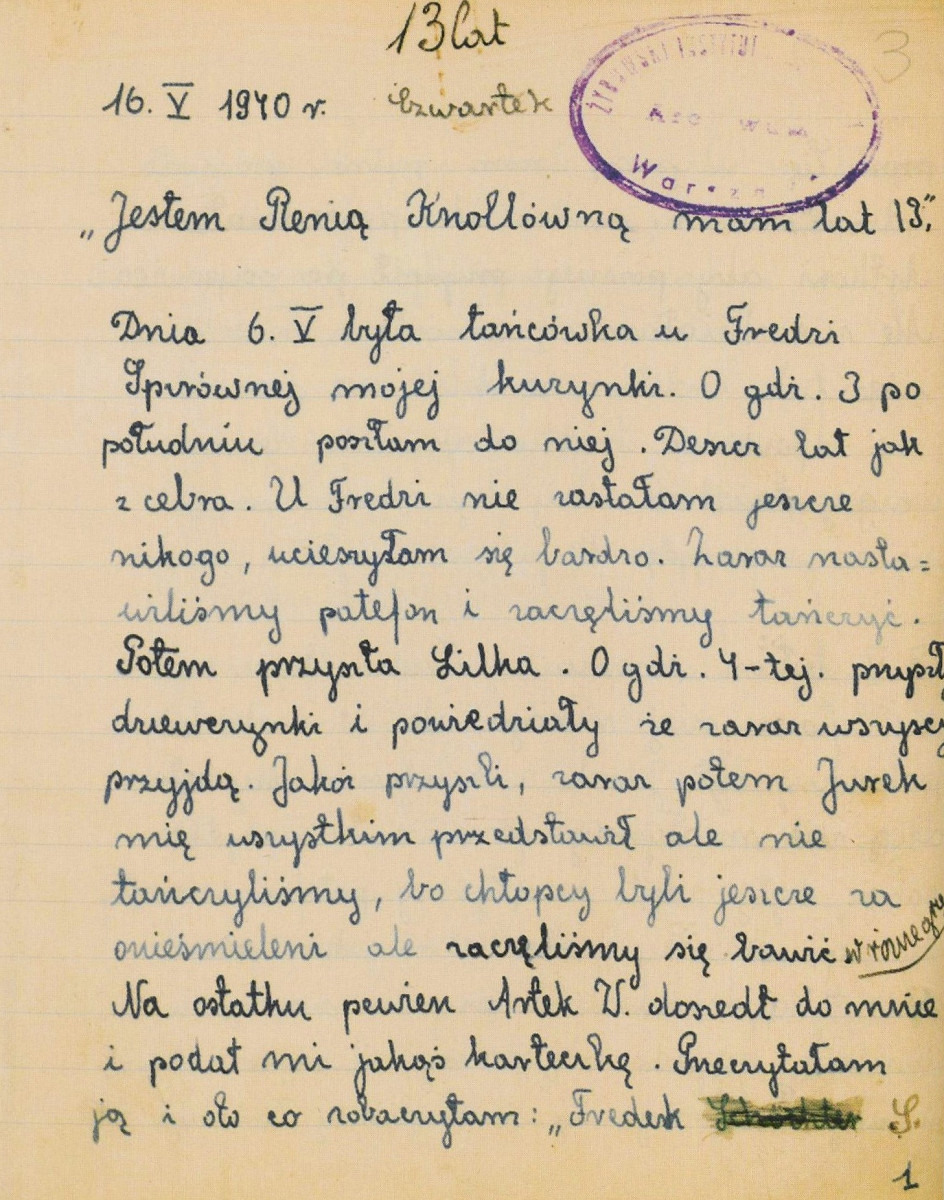 13 lat
3
16. V 1940 r. Czwartek
ŻYDOWSKI INSTYTUT
Warszawa
„Jestem Renią Knollówną mam lat 13."
Dnia 6. V była tańcówka u Fredzi
Spirównej mojej kuzynki. O gdz. 3 po
południu poszłam do niej. Deszcz lał jak
z cebra. U Fredzi nie zastałam jeszcze
nikogo, ucieszyłam się bardzo. Zaraz nasta=
wiliśmy patefon i zaczęliśmy tańczyć.
Potem przyszła Lilka. O gdz. 4-tej. przyszł
dziewczynki i powiedziały że zaraz wszyscy
przyjdą. Jakóż przyszli, zaraz potem Jurek
mię wszystkim przedstawił ale nie
tańczyliśmy, bo chłopcy byli jeszcze za
onieśmieleni ale zaczęliśmy się bawić w różne gry
Na ostatku pewien Artek W. doszedł do mnie
i podał mi jakąś karteczkę. Przeczytałam
ją i oto co zobaczyłam: „Fredek S.
1